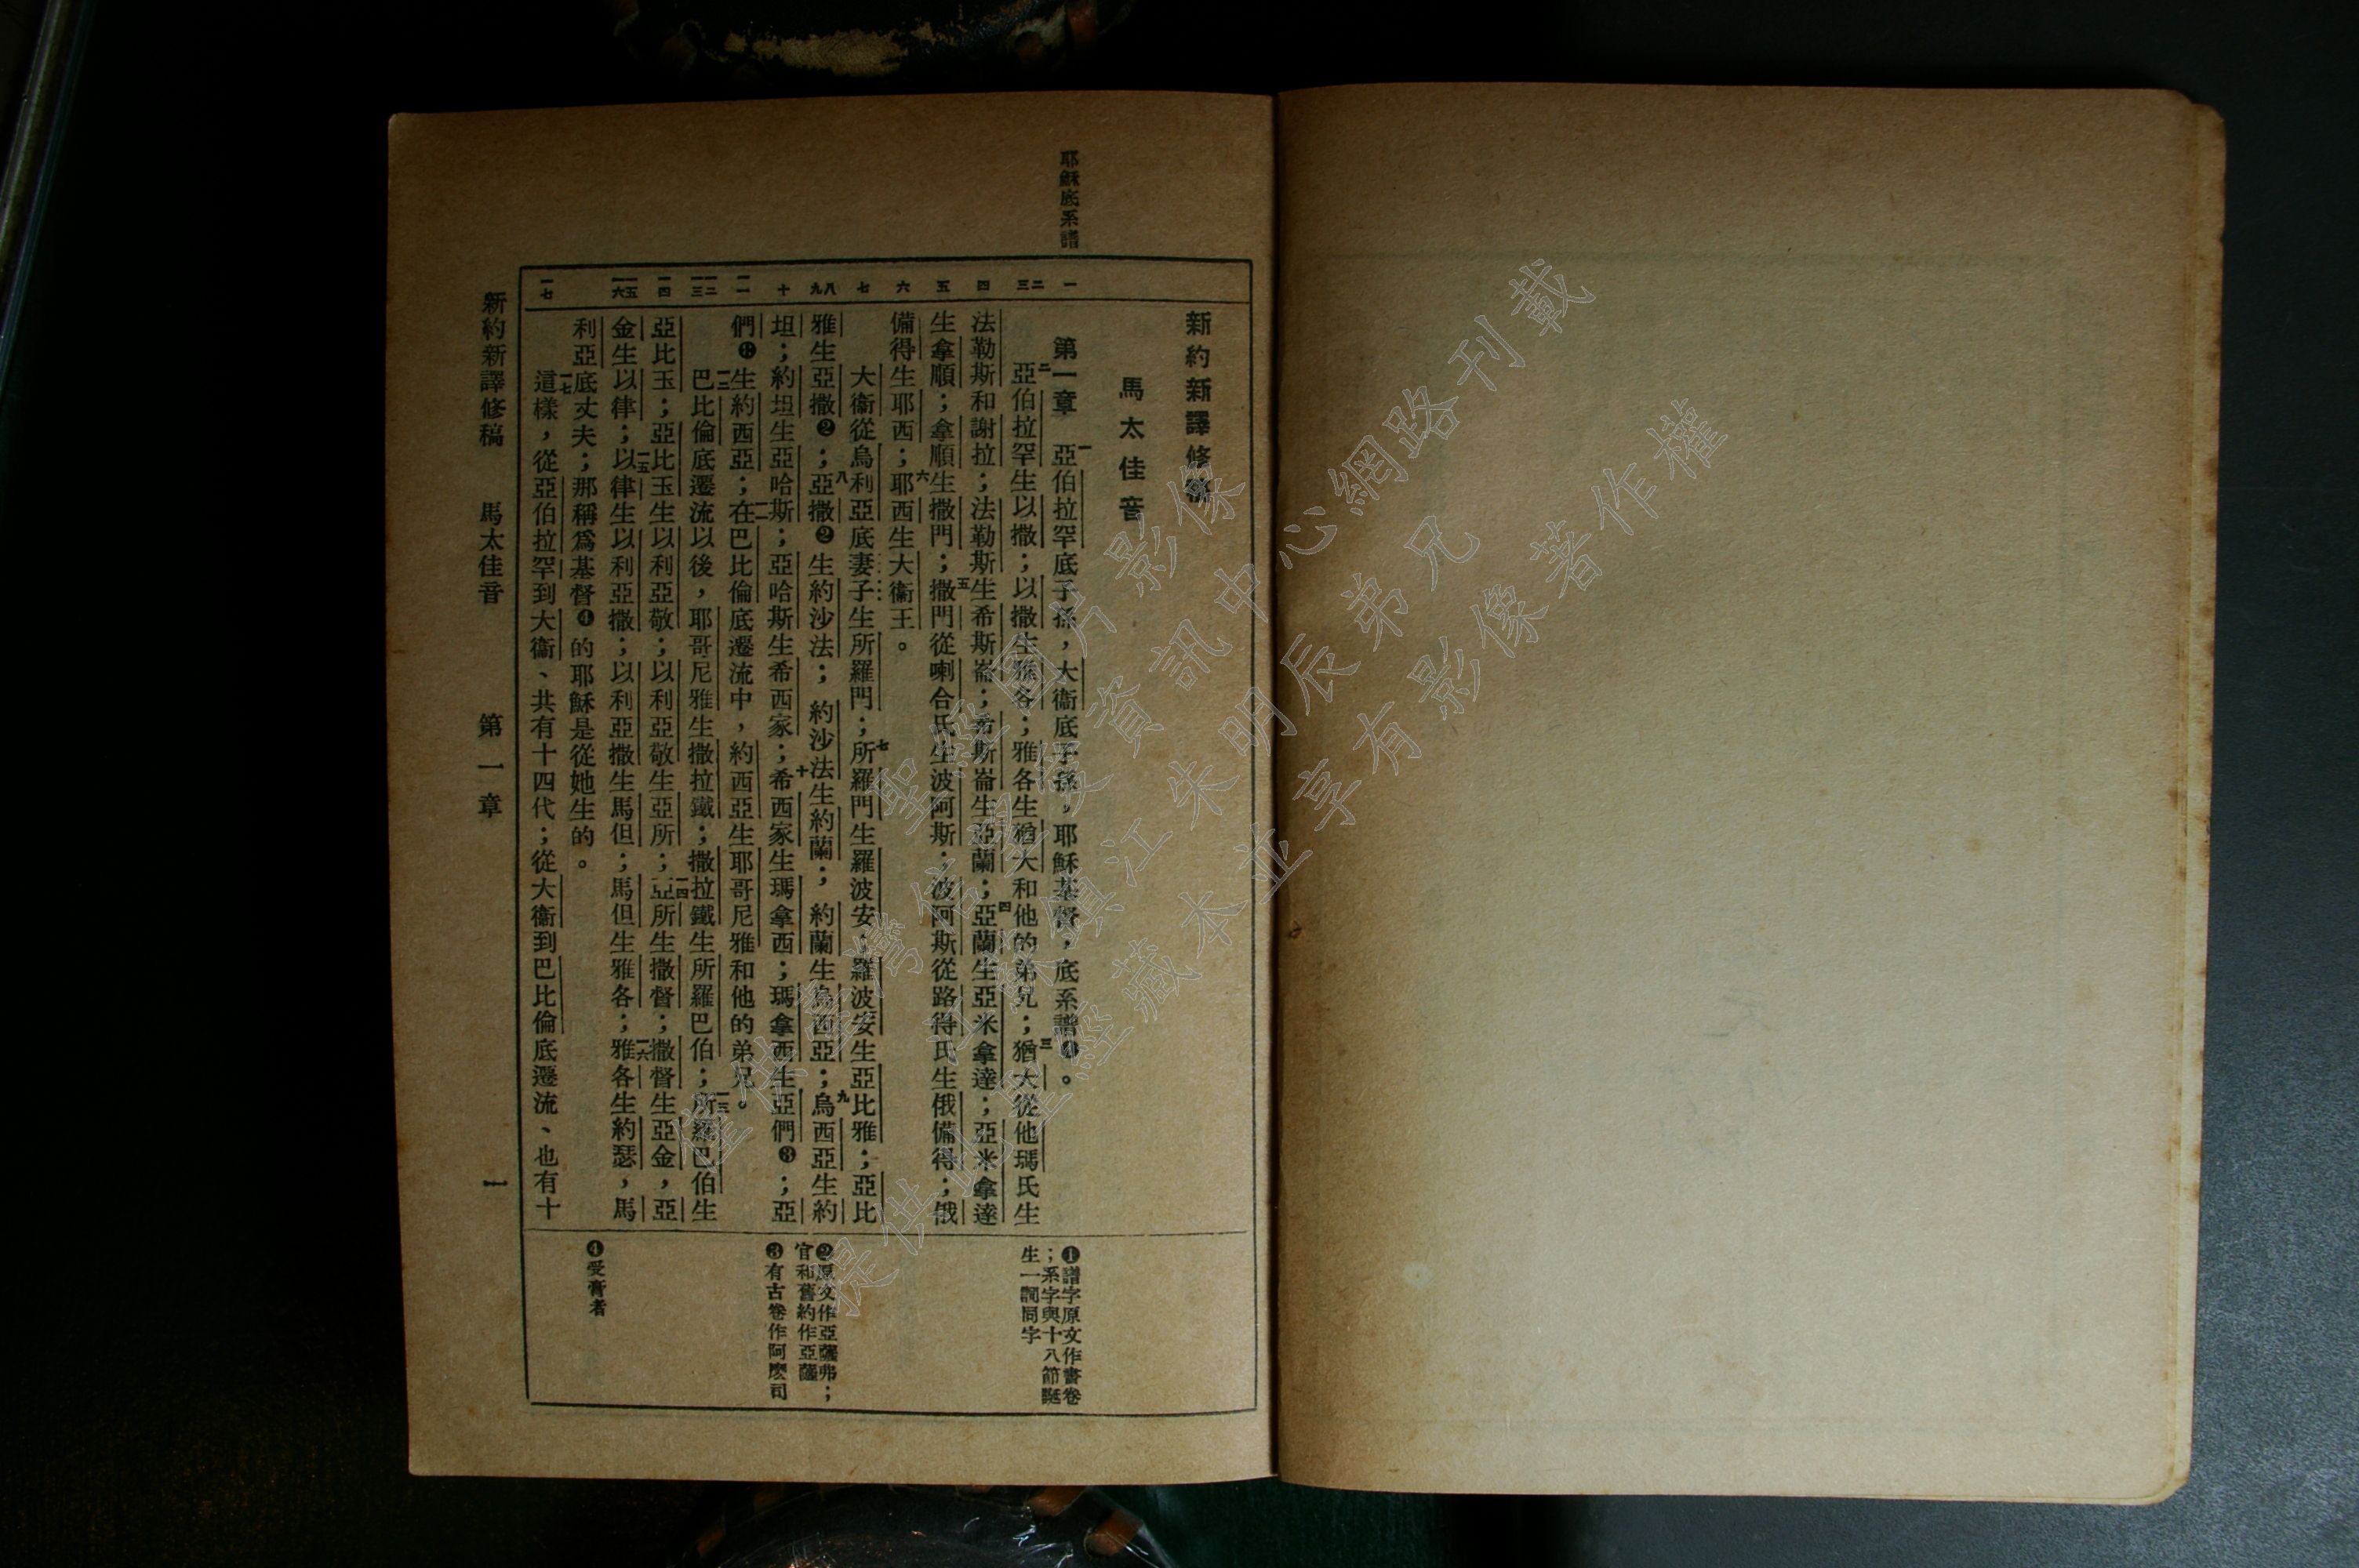 耶穌底系譜
一
二三
四
五
六
七
八九
十
一一
一二一三
一四
一五一六
一七
新約新譯修稿
馬太佳音
第一章 一亞伯拉罕底子孫，大衞底子孫，耶穌基督，底系譜❶。
二亞伯拉罕生以撒；以撒生雅各；雅各生猶大和他的弟兄；三猶大從他瑪氏生
法勒斯和謝拉；法勒斯生希斯崙；希斯崙生亞蘭；四亞蘭生亞米拿達；亞米拿達
生拿順；拿順生撒門；五撒門從喇合氏生波阿斯；波阿斯從路得氏生俄備得；俄
備得生耶西；六耶西生大衞王。
大衞從烏利亞底妻子生所羅門；七所羅門生羅波安；羅波安生亞比雅；亞比
雅生亞撒❷；八亞撒❷生約沙法；約沙法生約蘭；約蘭生烏西亞；九烏西亞生約
坦；約坦生亞哈斯；亞哈斯生希西家；十希西家生瑪拿西；瑪拿西生亞們❸；亞
們❸生約西亞；一一在巴比倫底遷流中，約西亞生耶哥尼雅和他的弟兄。
一二巴比倫底遷流以後，耶哥尼雅生撒拉鐵；撒拉鐵生所羅巴伯；一三所羅巴伯生
亞比玉；亞比玉生以利亞敬；以利亞敬生亞所；一四亞所生撒督；撒督生亞金，亞
金生以律；一五以律生以利亞撒；以利亞撒生馬但；馬但生雅各；一六雅各生約瑟，馬
利亞底丈夫；那稱爲基督❹的耶穌是從她生的。
一七這樣，從亞伯拉罕到大衞、共有十四代；從大衞到巴比倫底遷流、也有十
❶譜字原文作書卷
；系字與十八節誕
生一詞同字
❷原文作亞薩弗；
官和舊約作亞薩
❸有古卷作阿麽司
❹受膏者
新約新譯修稿 馬太佳音 第一章 一
聖經圖片影像
僅供臺灣信望愛資訊中心網路刊載
江蘇鎮江朱明辰弟兄
提供此聖經藏本並享有影像著作權